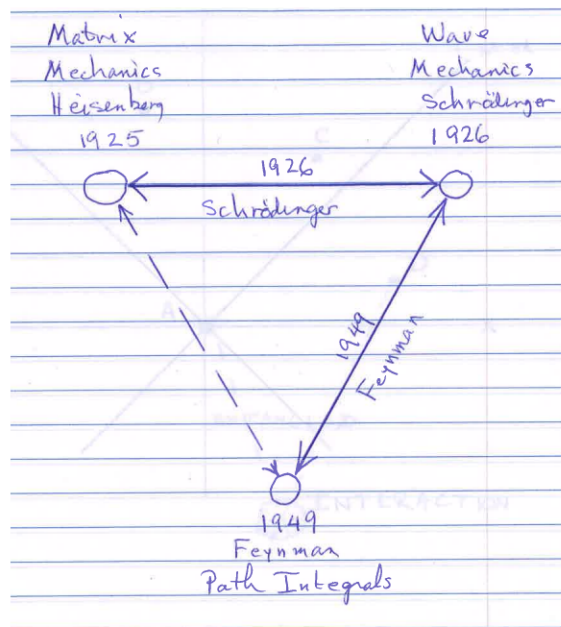 Matrix
Mechanics
Heisenberg
1925
Wave
Mechanics
Schrödinger
1926
1926
Schrödinger
1949
Feynman
1949
Feynman
Path Integrals
INTERACTION